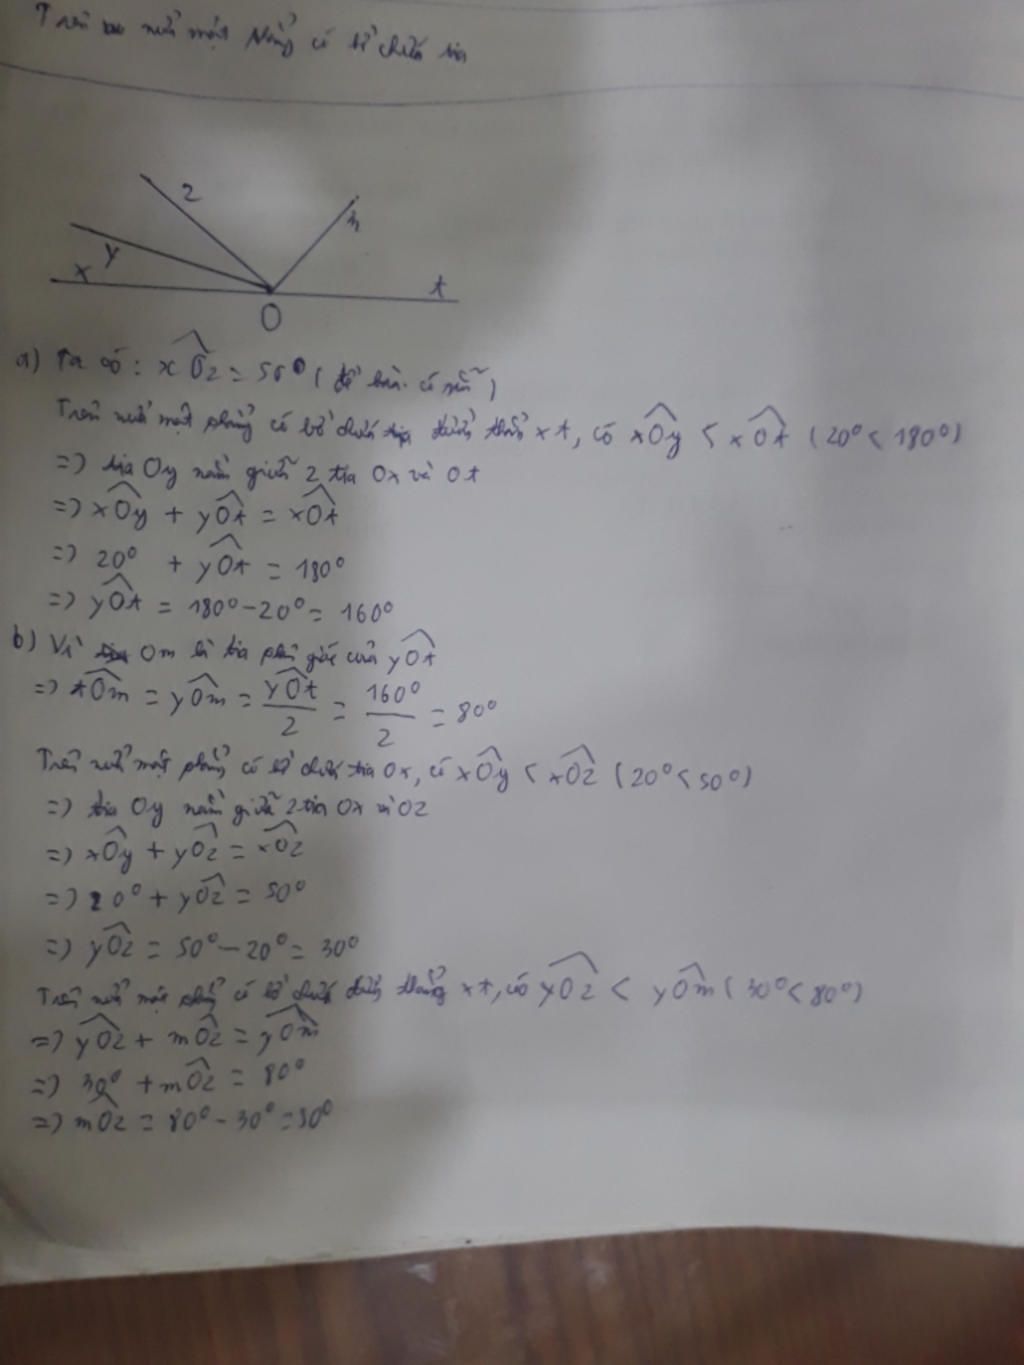 Trên nửa mặt phẳng có bờ chứa tia
z
m
y
x
t
O
a) Ta có: xÔz = 50° (đề bài có sẵn)
Trên nửa mặt phẳng có bờ chứa đường thẳng xt, có xÔy < xÔt (20° < 180°)
=> tia Oy nằm giữa 2 tia Ox và Ot
=> xÔy + yÔt = xÔt
=> 20° + yÔt = 180°
=> yÔt = 180° - 20° = 160°
b) Vì Om là tia phân giác của yÔt
=> tÔm = yÔm = yÔt/2 = 160°/2 = 80°
Trên nửa mặt phẳng có bờ chứa tia Ox, có xÔy < xÔz (20° < 50°)
=> tia Oy nằm giữa 2 tia Ox và Oz
=> xÔy + yÔz = xÔz
=> 20° + yÔz = 50°
=> yÔz = 50° - 20° = 30°
Trên nửa mặt phẳng có bờ chứa đường thẳng xt, có yÔz < yÔm (30° < 80°)
=> yÔz + mÔz = yÔm
=> 30° + mÔz = 80°
=> mÔz = 80° - 30° = 50°